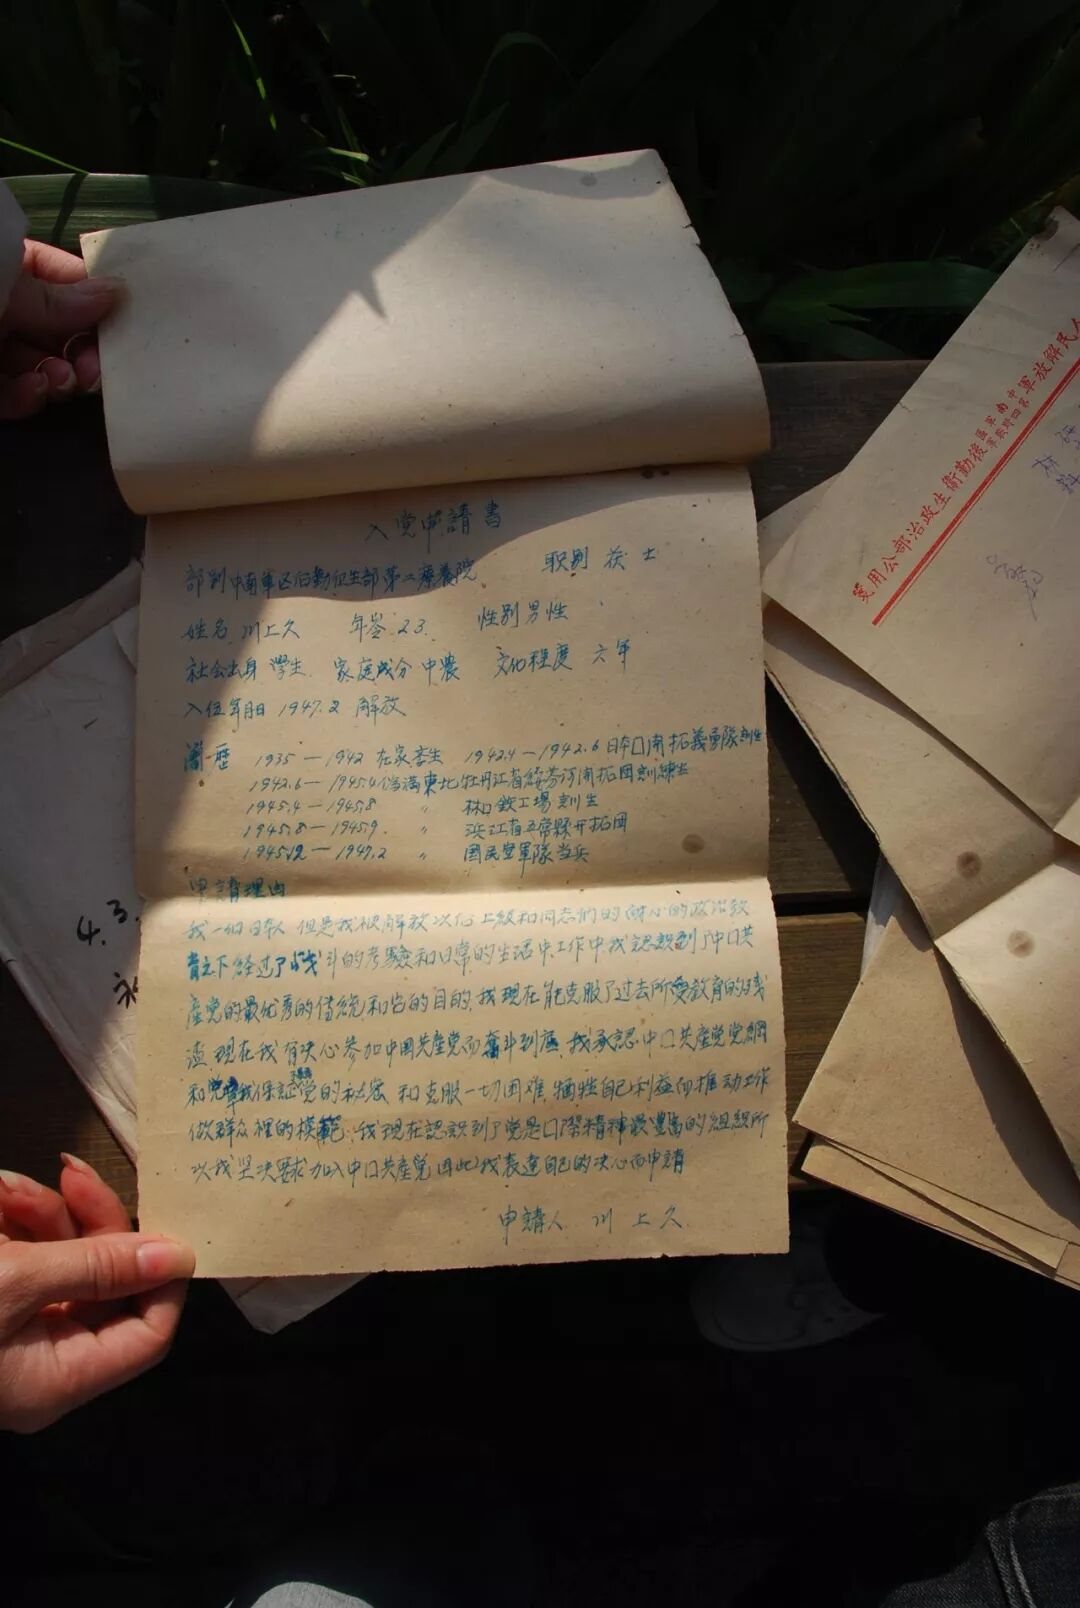 入党申請書
部别 中南軍区后勤卫生部第二療養院 职别
姓名 川上久 年令 23. 性别 男性
社会出身 學生. 家庭成分 中農 文化程度 六年
入伍年月日 1947.2 解放
簡歷 1935—1942 在家學生 1942.4—1942.6 日本口開拓義勇隊訓生
1942.6—1945.4 伪满東北牡丹江省綏芬河開拓団訓練生
1945.4—1945.8 〃 林口鉄工場訓生
1945.8—1945.9. 〃 浜江省五常縣开拓団
1945.12—1947.2 〃 国民党軍隊当兵
申請理由
我一個日本人 但是我被解放以后上級和同志們的耐心的政治教
育之下経过了战斗的考驗和日常的生活中.工作中.我認識到了中口共
產党的最优秀的傳統和它的目的.我現在能克服了过去所受教育的残
渣 現在我有决心参加中国共産党而奮斗到底.我承認中口共産党党綱
和党章我保証党的秘密 和克服一切困难 牺牲自己利益而推动工作
做群众裡的模範.我現在認識到了党是口際精神最豊富的組織所
以我坚决要求加入中口共産党 因此我表達自己的决心而申請
申請人 川上久
人民解放軍中南軍區第四野戰軍後勤衛生政治部公用箋
4.3.